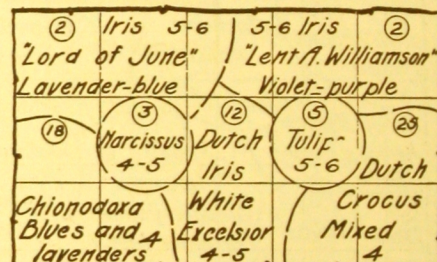 2 Iris 5-6
"Lord of June"
Lavender-blue
5-6 Iris 2
"Lent A. Williamson"
Violet-purple
18
3
Narcissus
4-5
12
Dutch
Iris
White
Excelsior
4-5
5
Tulip
5-6
25
Dutch
Crocus
Mixed
4
Chionodoxa
Blues and 4
lavenders